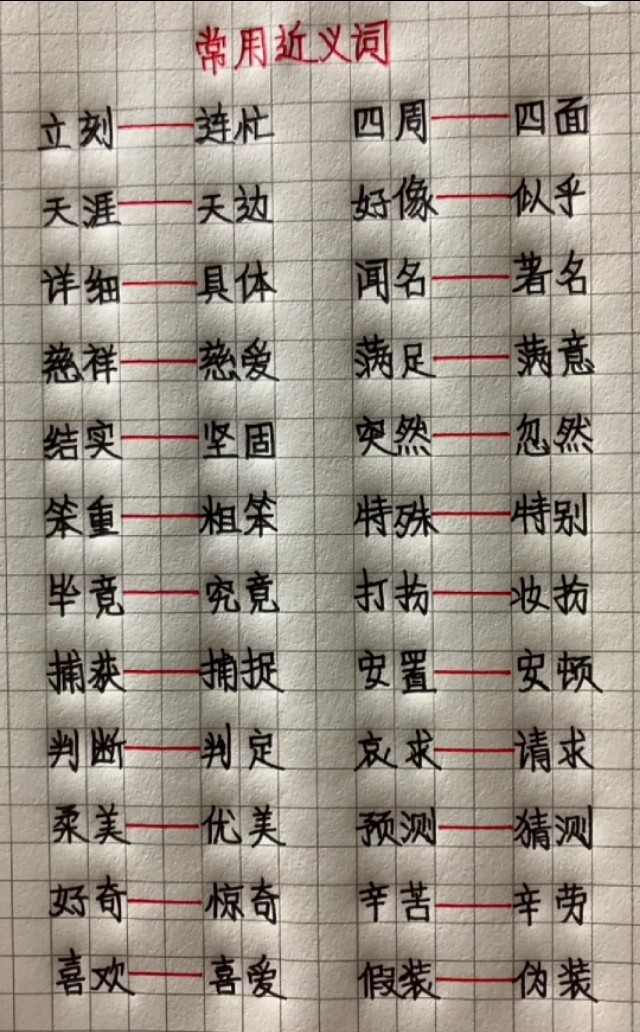 常用近义词
立刻——连忙 四周——四面
天涯——天边 好像——似乎
详细——具体 闻名——著名
慈祥——慈爱 满足——满意
结实——坚固 突然——忽然
笨重——粗笨 特殊——特别
毕竟——究竟 打扮——妆扮
捕获——捕捉 安置——安顿
判断——判定 哀求——请求
柔美——优美 预测——猜测
好奇——惊奇 辛苦——辛劳
喜欢——喜爱 假装——伪装